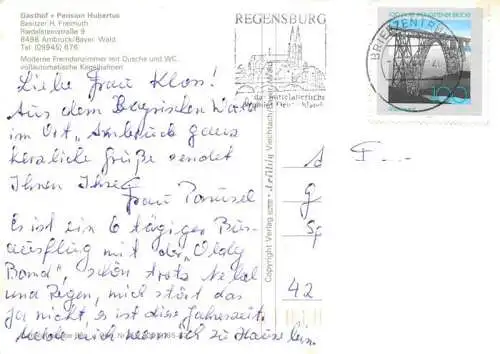 Gasthof + Pension Hubertus
Besitzer H. Freimuth
Riedelsteinstraße 9
8496 Arnbruck/Bayer. Wald
Tel. (09945) 676
Moderne Fremdenzimmer mit Dusche und WC,
vollautomatische Kegelbahnen
Liebe Frau Kloss!
Aus dem Bayrischen Wald
im Ort „Arnbruck" ganz
herzliche Grüße sendet
Ihnen Ihre
Frau
Es ist ein 6 tägiger Bus-
ausflug mit der „Oldy
Band", schön trotz Nebel
und Regen, mich stört das
ja nicht, es ist diese Jahreszeit.
mich wenn ich zu Hause bin.
REGENSBURG
das mittelalterliche
BRIEFZENTRUM
100 JAHRE MÜNGSTENER BRÜCKE
100
Copyright Verlag
Viechtach
A
F...
g
Sp
42